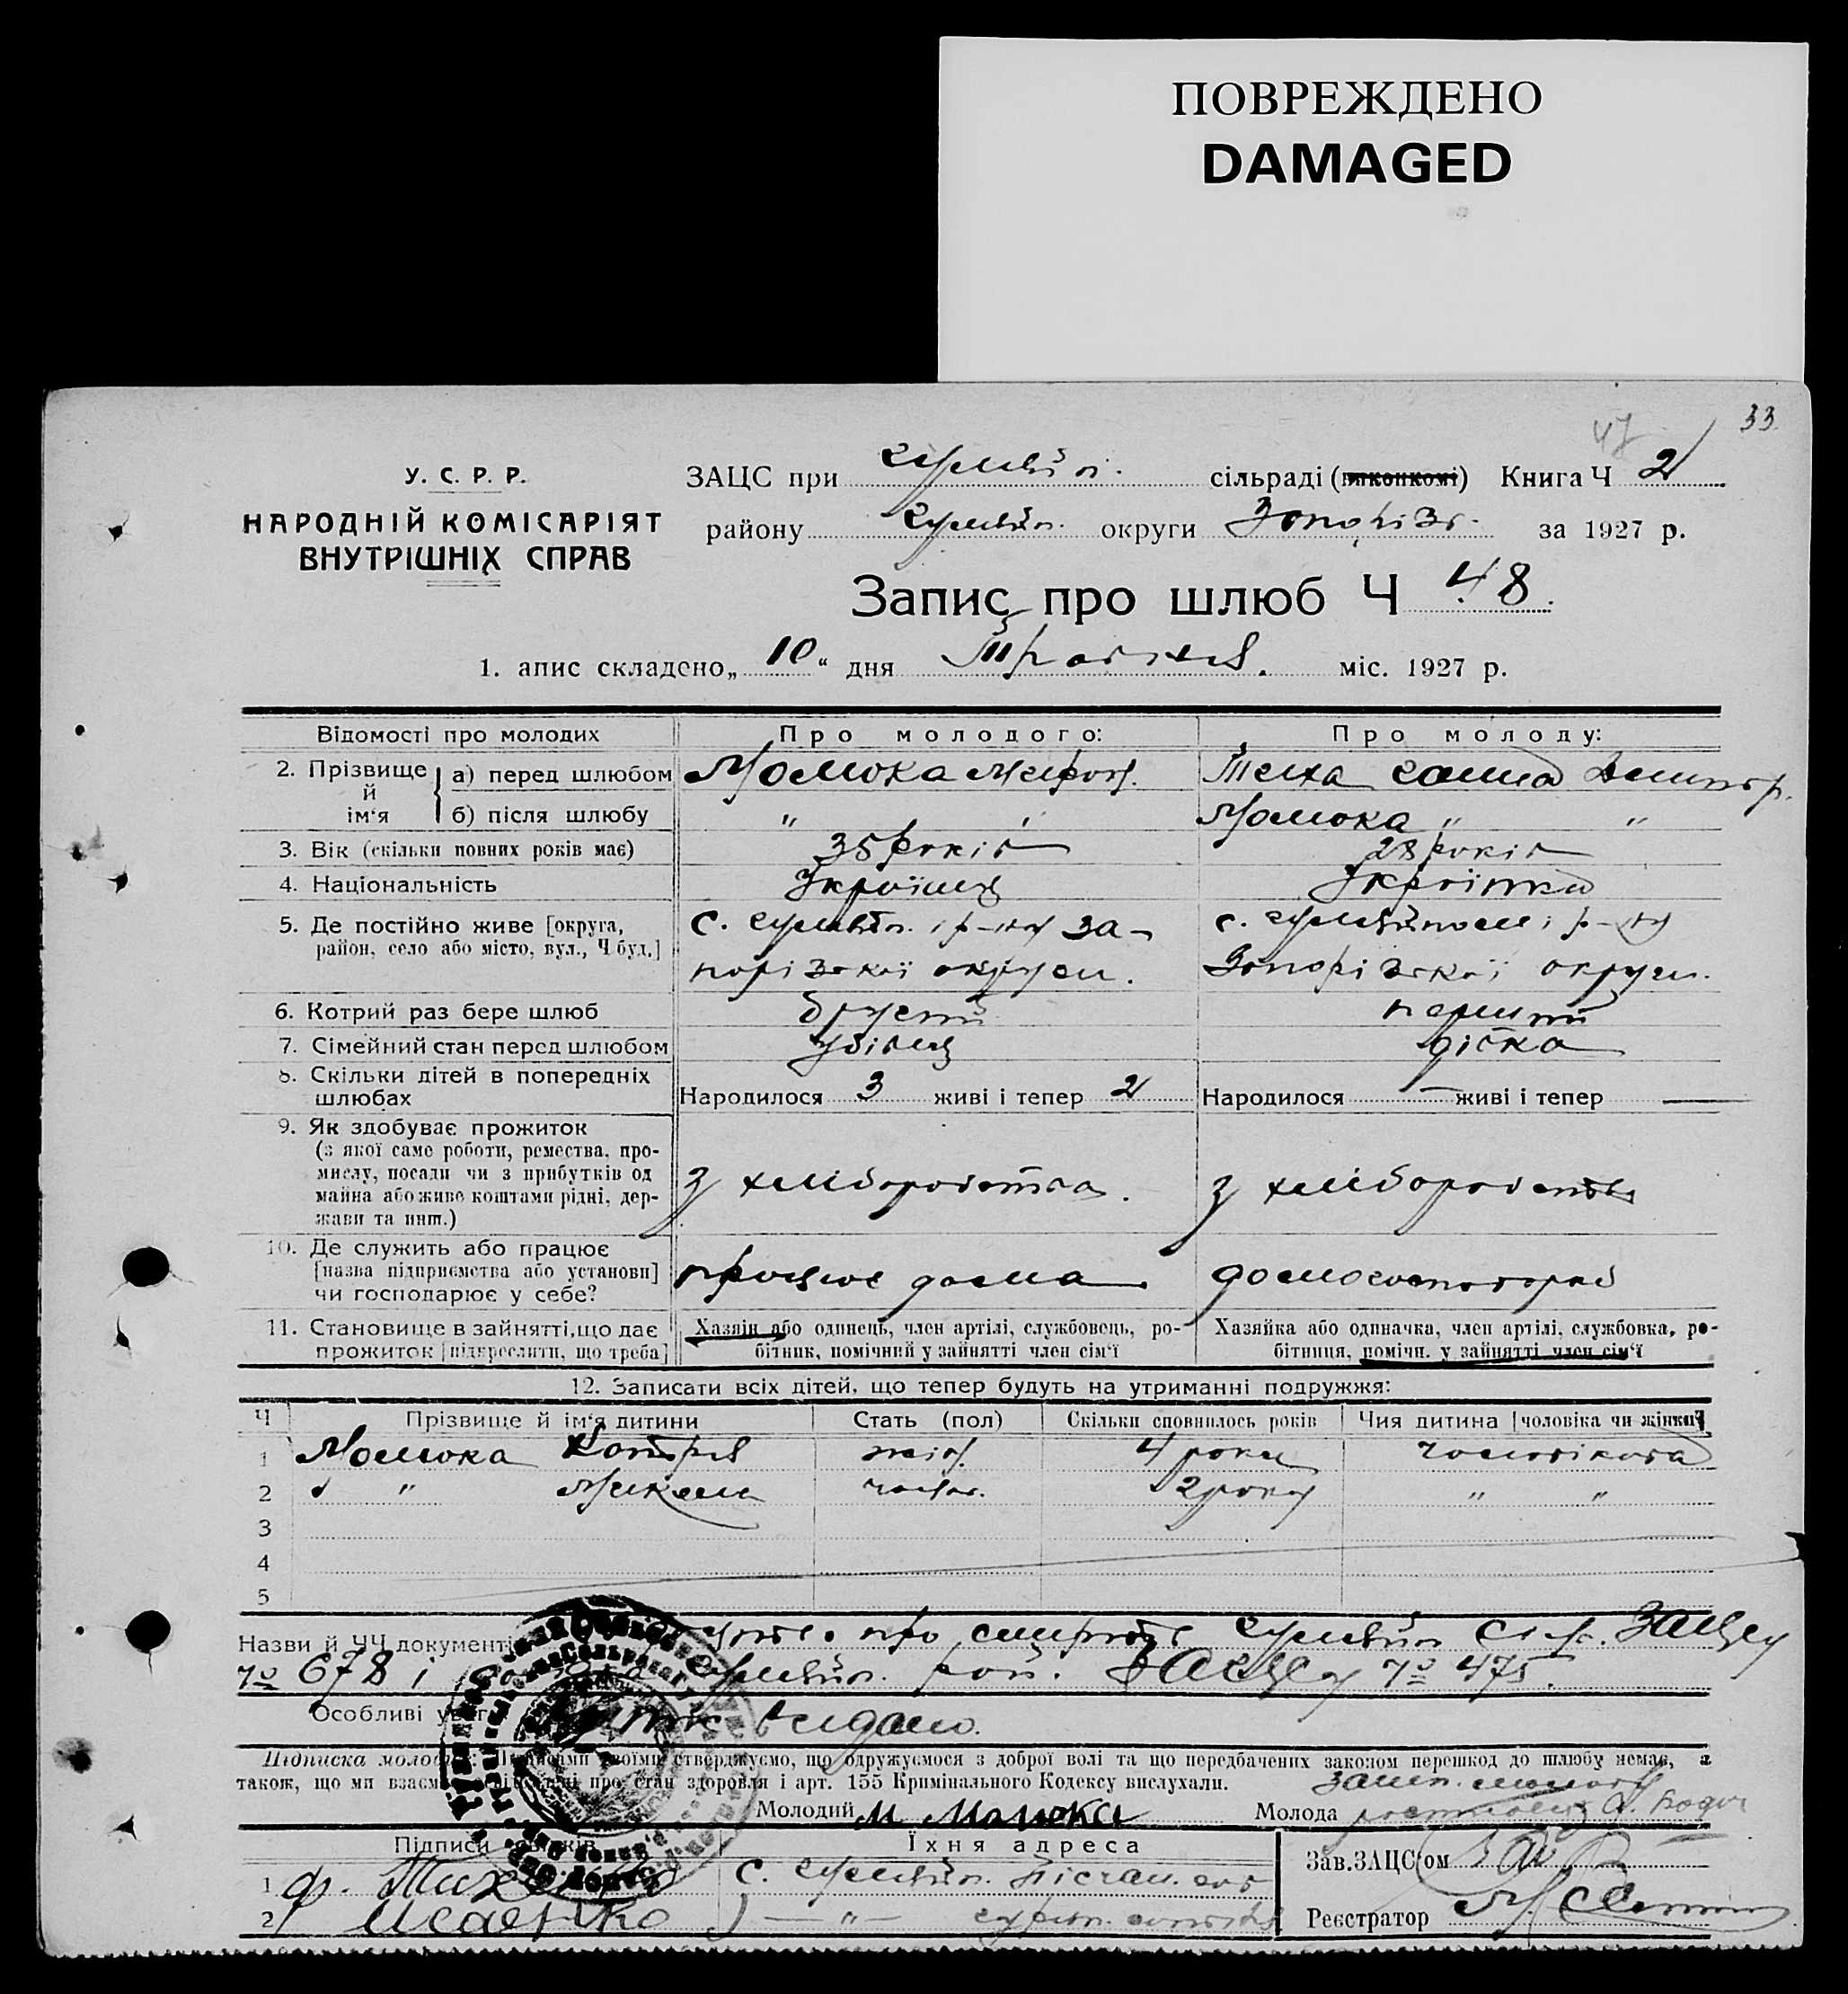 ПОВРЕЖДЕНО
DAMAGED
33
47
У. С. Р. Р.
НАРОДНІЙ КОМІСАРІЯТ
ВНУТРІШНІХ СПРАВ
ЗАЦС при Гуляйп. сільраді (виконкомі) Книга Ч 2
району Гуляйп. округи Запоріз. за 1927 р.
Запис про шлюб Ч 48
1. апис складено „10“ дня Травня. міс. 1927 р.
Відомості про молодих Про молодого: Про молоду:
2. Прізвище й ім‘я а) перед шлюбом Малюка Теха Ганна
б) після шлюбу " " Малюка " "
3. Вік (скільки повних років має) 35 років 28 років
4. Національність Українец Українка
5. Де постійно живе [округа, район, село або місто, вул., Ч буд.]
с. Гуляйп. і р-ну За-
порізької округи.
с. Гуляйполе і р-ну
Запорізької округи.
6. Котрий раз бере шлюб другий перший
7. Сімейний стан перед шлюбом удівец дівка
8. Скільки дітей в попередніх шлюбах Народилося 3 живі і тепер 2 Народилося — живі і тепер —
9. Як здобуває прожиток
(з якої саме роботи, ремества, про-
мислу, посади чи з прибутків од
майна або живе коштами рідні, дер-
жави та инш.)
З хліборобства. З хліборобства
10. Де служить або працює
[назва підприємства або установи]
чи господарює у себе?
працює дома домогосподарка
11. Становище в зайнятті, що дає
прожиток [підкреслити, що треба]
Хазяїн або одинець, член артілі, службовець, ро-
бітник, помічний у зайнятті член сім‘ї
Хазяйка або одиначка, член артілі, службовка, ро-
бітниця, помічн. у зайнятті член сім‘ї
12. Записати всіх дітей, що тепер будуть на утриманні подружжя:
Ч Прізвище й ім‘я дитини Стать (пол) Скільки сповнилось років Чия дитина [чоловіка чи жінки]
1 Малюка Катря жін. 4 роки чоловікова
2 " Микола чолов. 2 роки " "
3
4
5
Назви й ЧЧ документі про смерть Гуляйп. сіл. Загсу
№ 678 і Гуляйп. рай. Загсу № 475.
Особливі видано.
Підписка молодих: Підписами своїми стверджуємо, що одружуємося з доброї волі та що передбачених законом перешкод до шлюбу немає, а
також, що ми взаємно про стан здоровля і арт. 155 Кримінального Кодексу вислухали.
Молодий М Малюка Молода
Підписи свідків Їхня адреса
1 ф. с. Гуляйп.
2 Исаенко — " —
Зав. ЗАЦС‘ом
Реєстратор